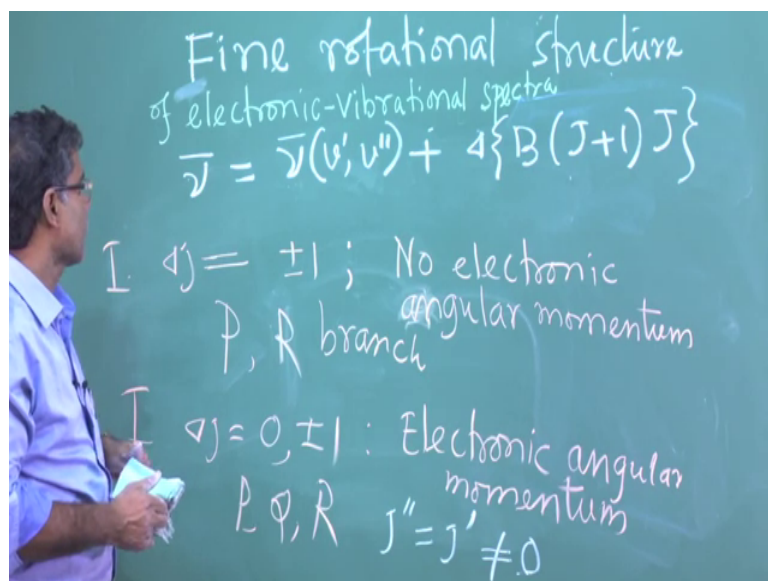 Fine rotational structure
of electronic-vibrational spectra
ν̄ = ν̄(v', v'') + Δ{B(J+1)J}
I. ΔJ = ±1 ; No electronic
angular momentum
P, R branch
I ΔJ = 0, ±1 : Electronic angular
momentum
P, Q, R J'' = J' ≠ 0